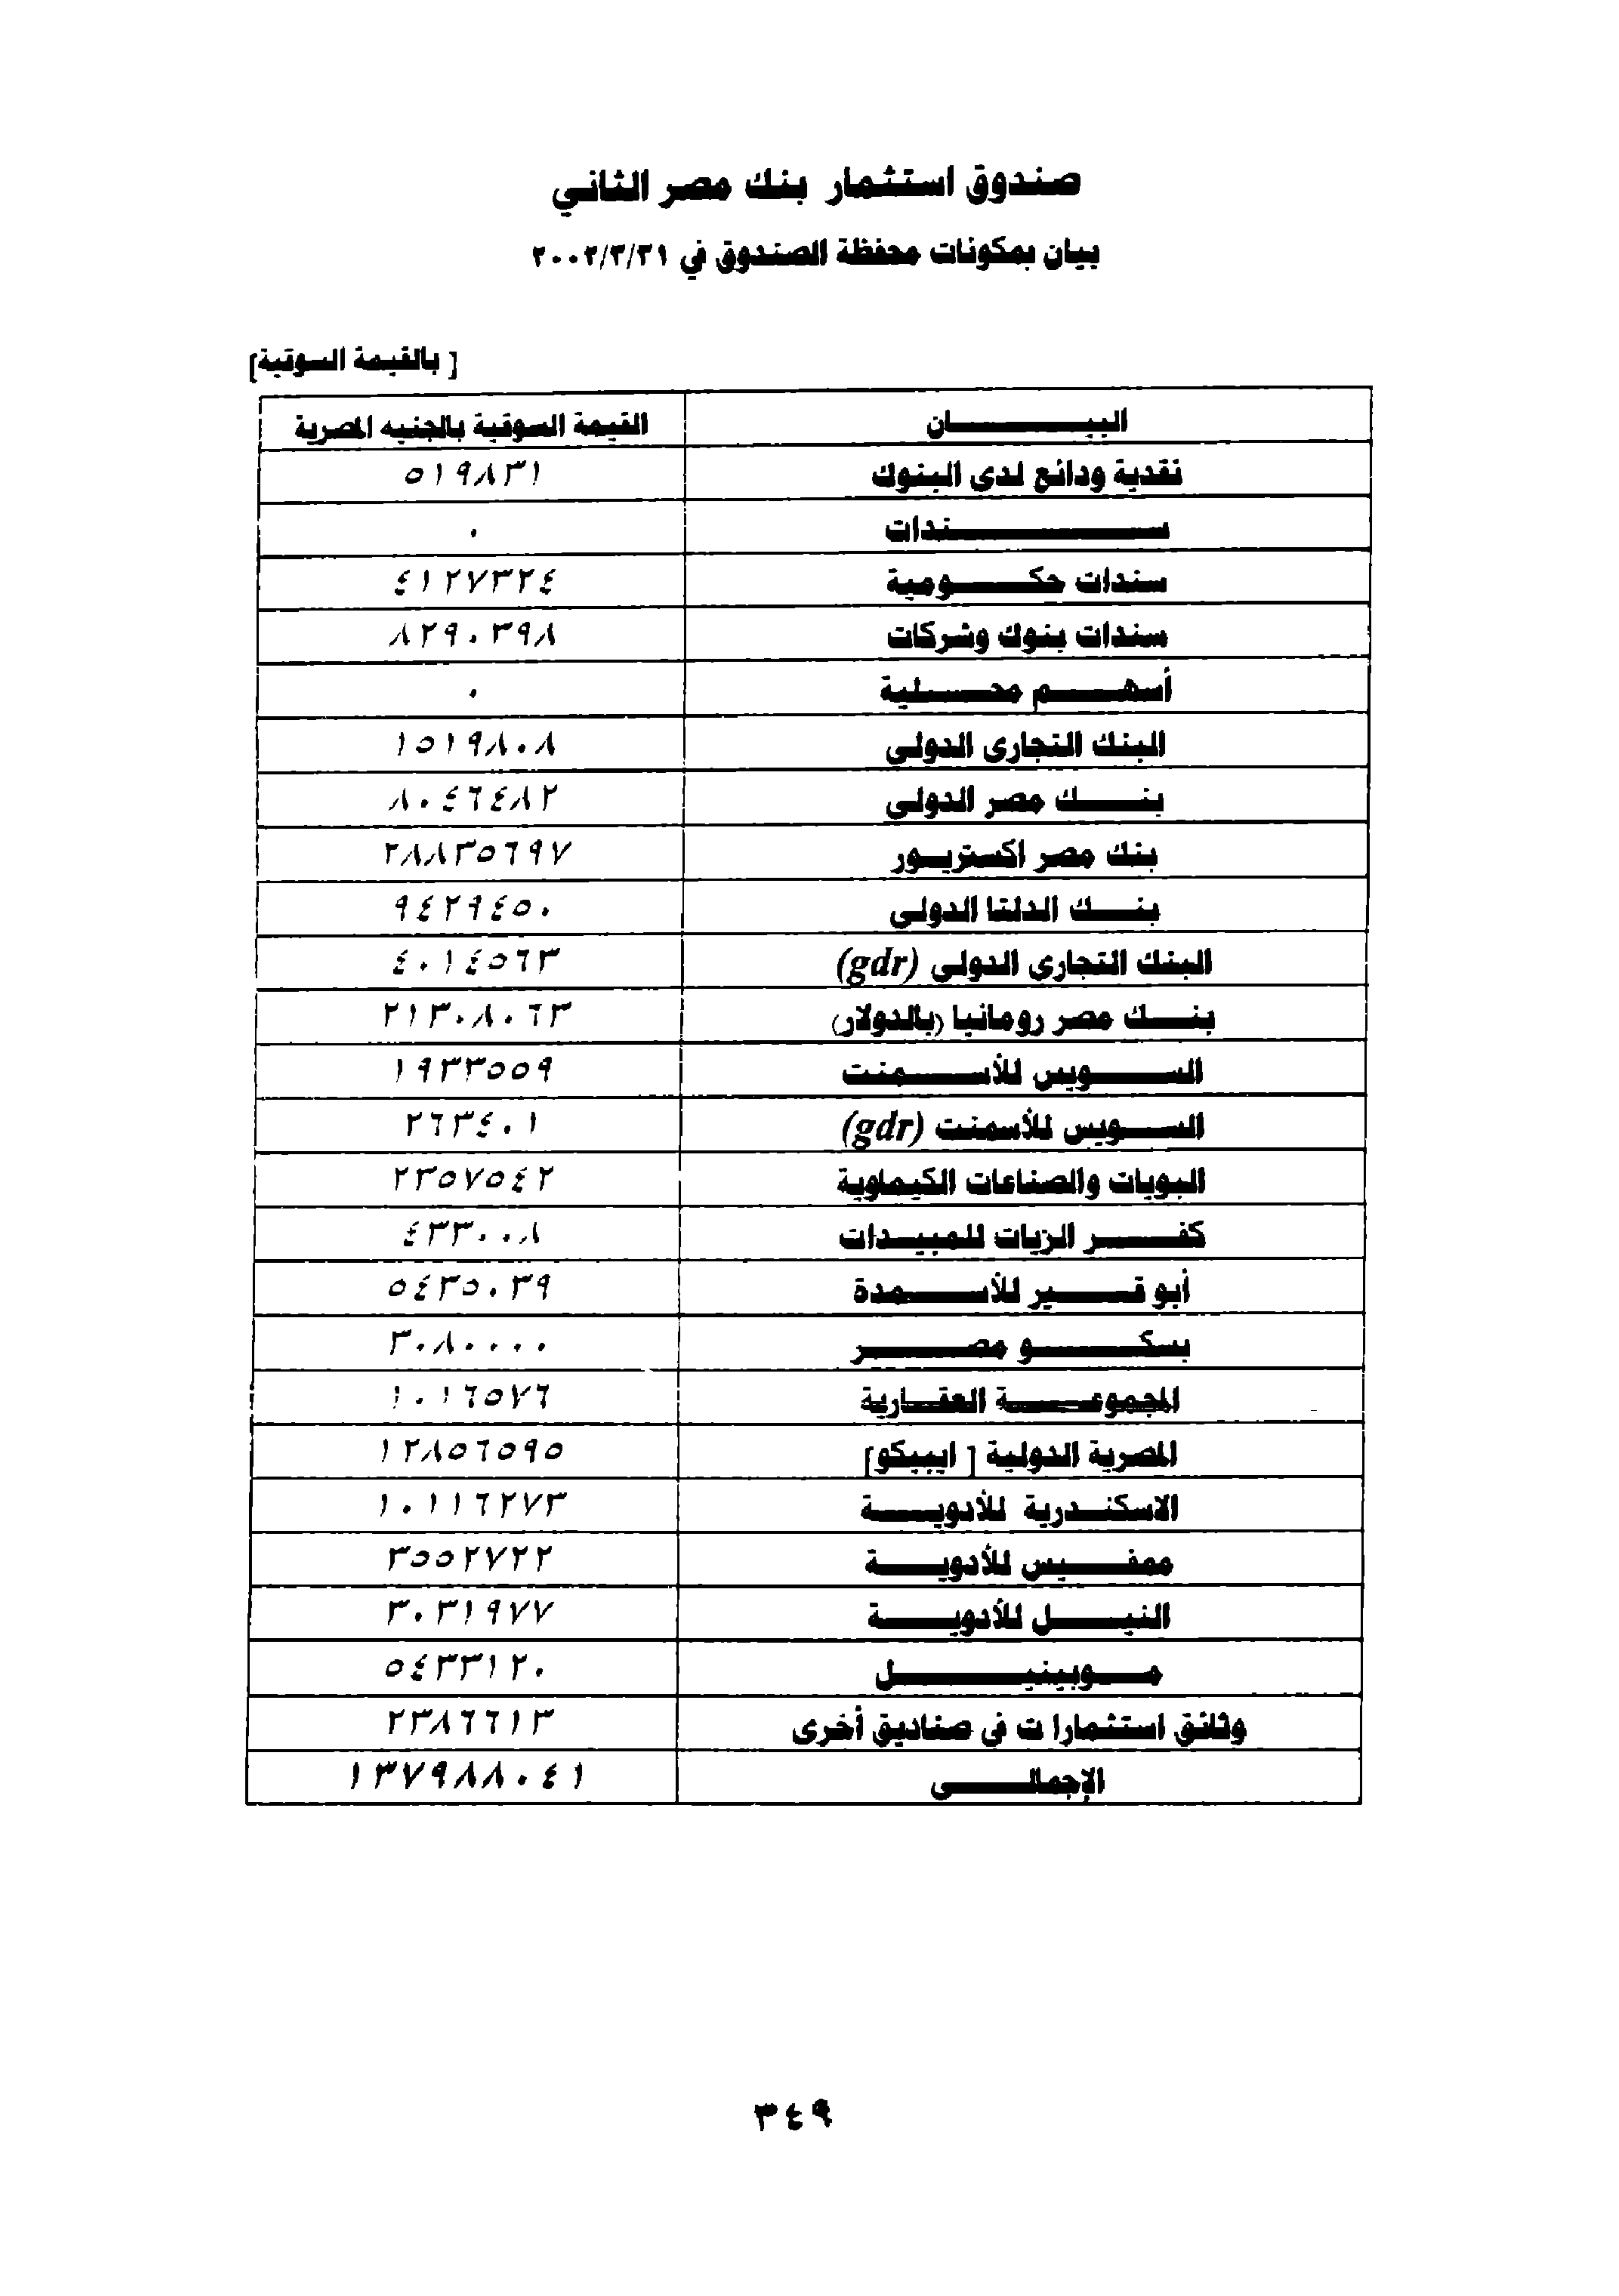 صندوق استثمار بنك مصر الثاني
بيان بمكونات محفظة الصندوق في ٢٠٠٢/٣/٣١
[ بالقيمة السوقية]
البيـــــــان القيمة السوقية بالجنيه المصرية
نقدية ودائع لدى البنوك ٥١٩٨٣١
ســـــــــــندات ٠
سندات حكـــــومية ٤١٢٧٣٢٤
سندات بنوك وشركات ٨٢٩٠٣٩٨
أسهــــم محــــلية ٠
البنك التجارى الدولى ١٥١٩٨٠٨
بنـــــك مصر الدولى ٨٠٤٦٤٨٢
بنك مصر اكستريـــور ٢٨٨٣٥٦٩٧
بنــــك الدلتا الدولى ٩٤٢٩٤٥٠
البنك التجارى الدولى (gdr) ٤٠١٤٥٦٣
بنــــك مصر رومانيا (بالدولار) ٢١٣٠٨٠٦٣
الســــــويس للأســــمنت ١٩٣٣٥٥٩
الســـــويس للأسمنت (gdr) ٢٦٣٤٠١
البويات والصناعات الكيماوية ٢٣٥٧٥٤٢
كفــــــر الزيات للمبيـــدات ٤٣٣٠٠٨
أبو قـــــير للأســــمدة ٥٤٣٥٠٣٩
بسكـــــــو مصـــــــر ٣٠٨٠٠٠٠
المجموعـــــة العقـــارية ١٠١٦٥٧٦
المصرية الدولية [ ايبيكو] ١٢٨٥٦٥٩٥
الاسكنـــدرية للأدويــــة ١٠١١٦٢٧٣
ممفـــــيس للأدويــــة ٣٥٥٢٧٢٢
النيـــــل للأدويــــة ٣٠٣١٩٧٧
مـــوبينيــــــــل ٥٤٣٣١٢٠
وثائق استثمارا ت فى صناديق أخرى ٢٣٨٦٦١٣
الإجمالـــــى ١٣٧٩٨٨٠٤١
٣٤٩